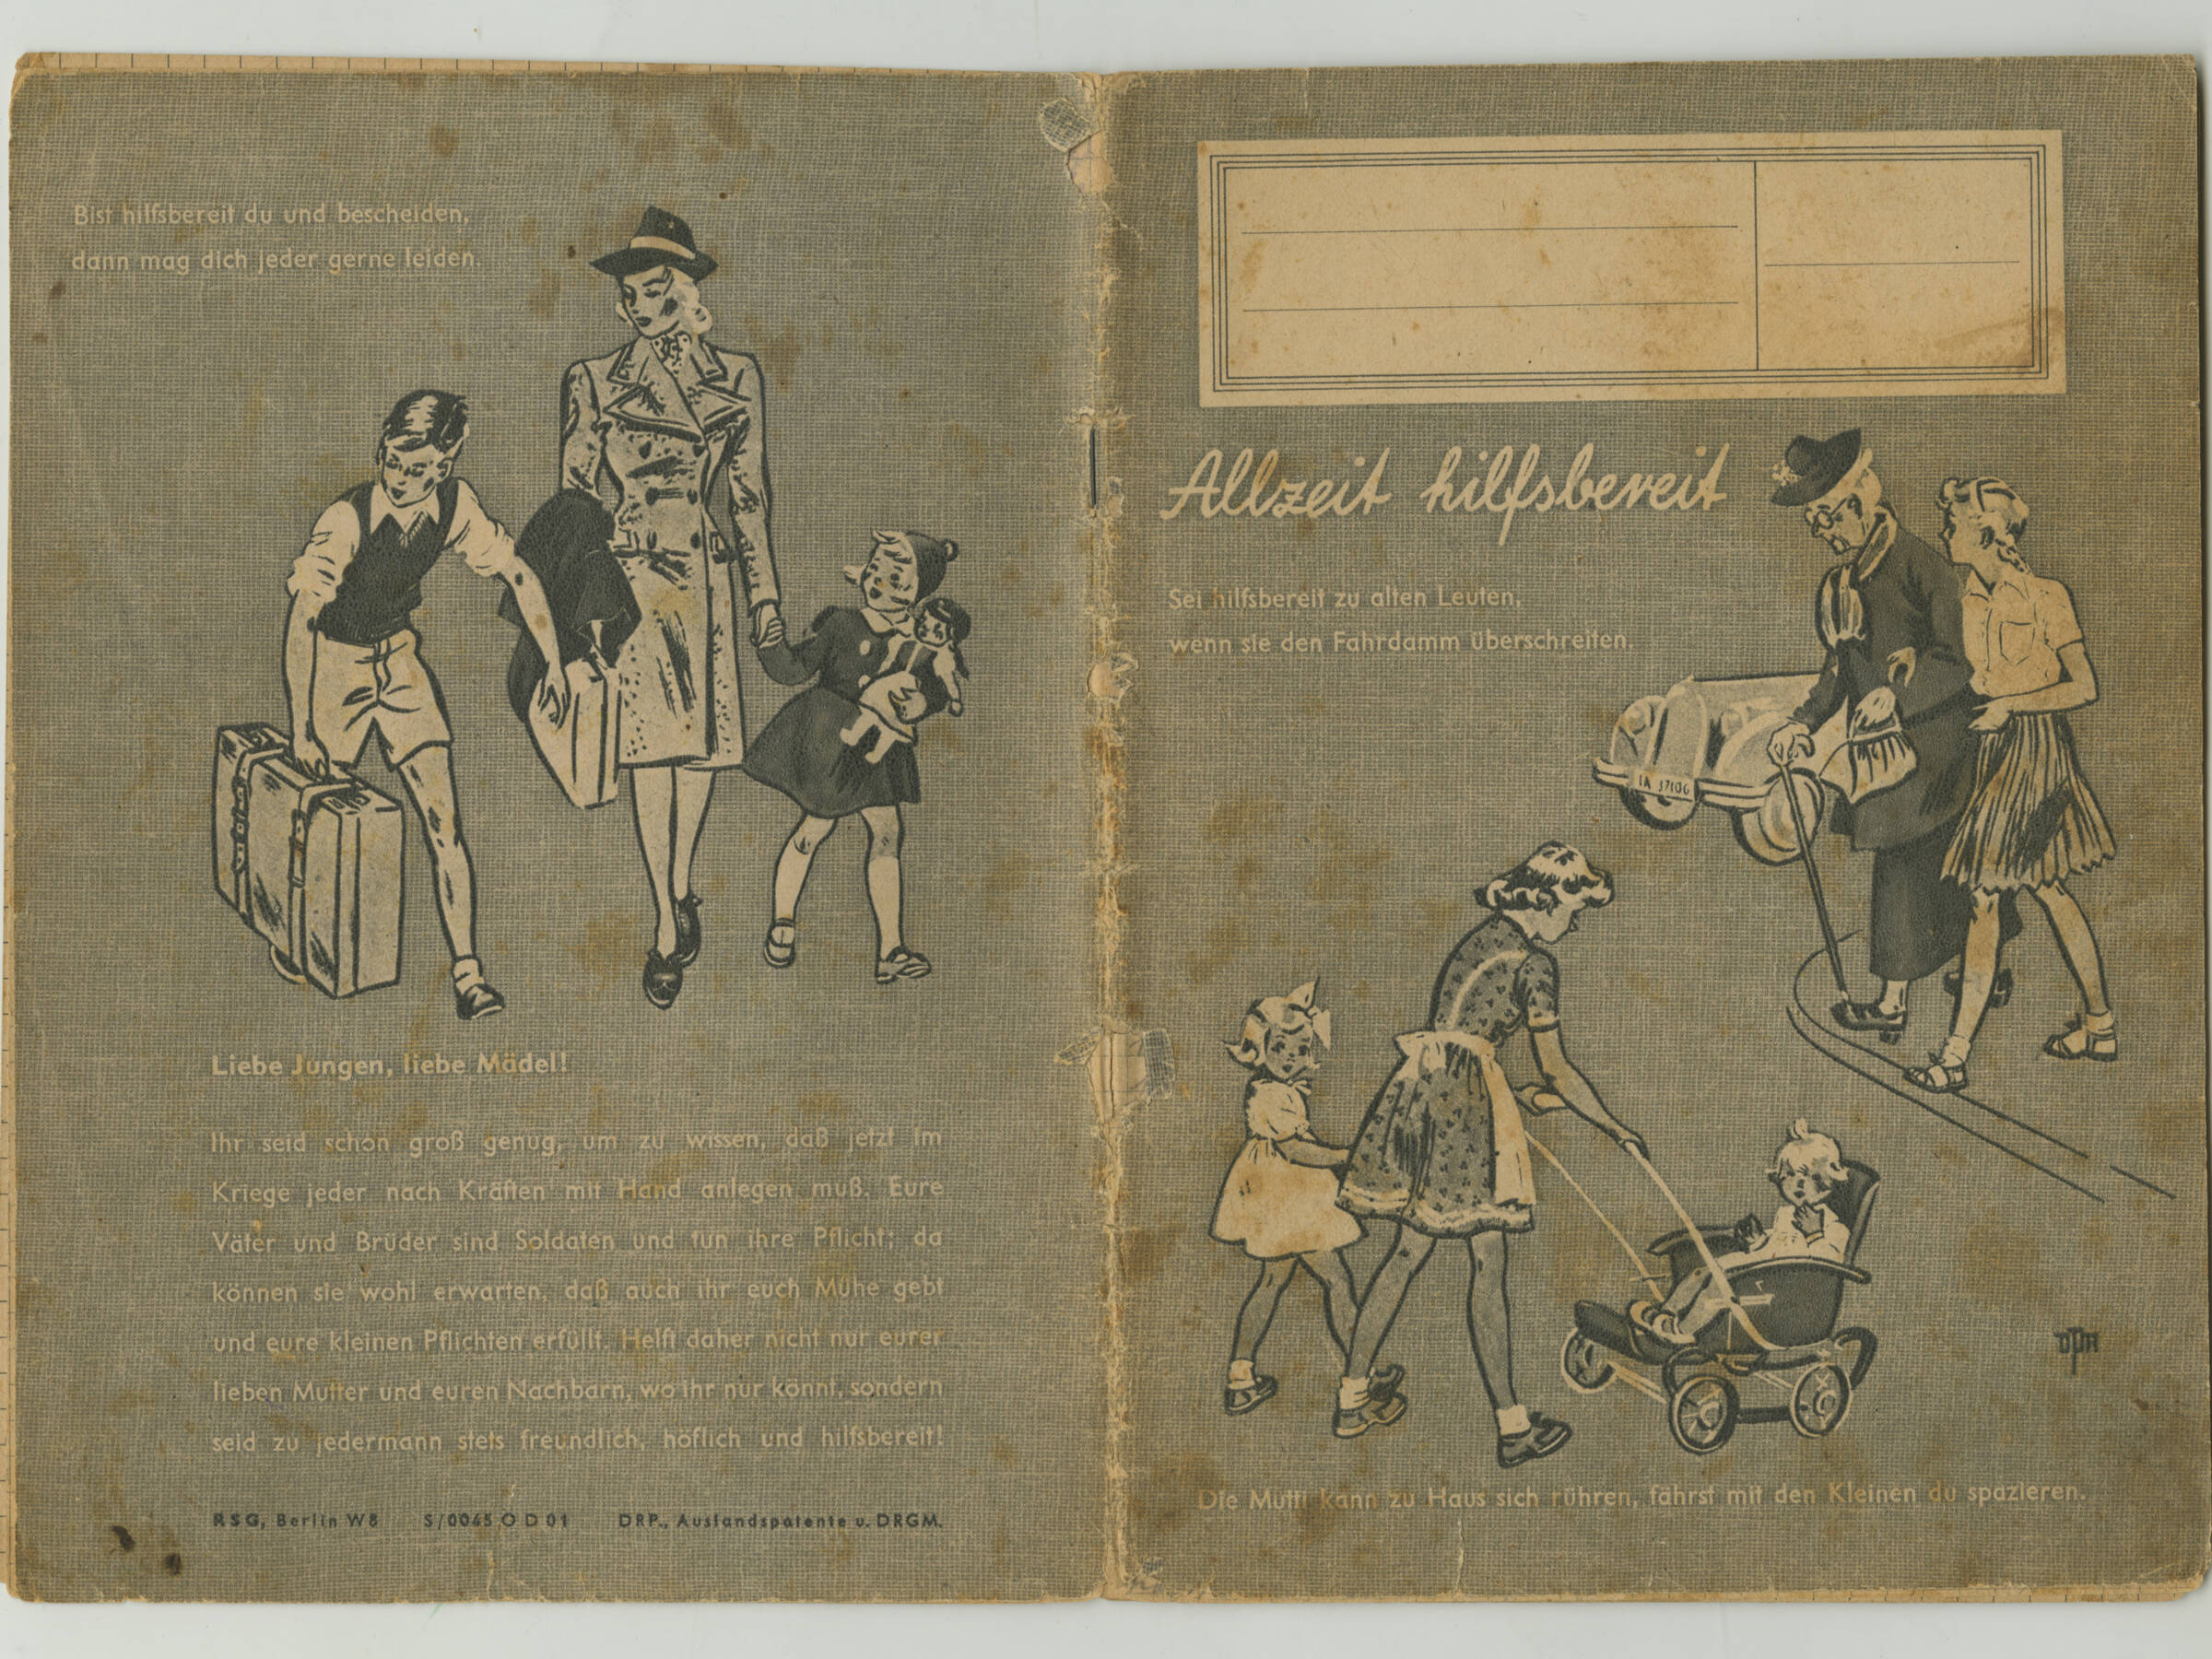 Bist hilfsbereit du und bescheiden,
dann mag dich jeder gerne leiden.
Liebe Jungen, liebe Mädel!
Ihr seid schon groß genug, um zu wissen, daß jetzt im
Kriege jeder nach Kräften mit Hand anlegen muß. Eure
Väter und Brüder sind Soldaten und tun ihre Pflicht; da
können sie wohl erwarten, daß auch ihr euch Mühe gebt
und eure kleinen Pflichten erfüllt. Helft daher nicht nur eurer
lieben Mutter und euren Nachbarn, wo ihr nur könnt, sondern
seid zu jedermann stets freundlich, höflich und hilfsbereit!
RSG, Berlin W8 S/0045 O D 01 DRP., Auslandspatente u. DRGM.
Allzeit hilfsbereit
Sei hilfsbereit zu alten Leuten,
wenn sie den Fahrdamm überschreiten.
IA 37106
Die Mutti kann zu Haus sich rühren, fährst mit den Kleinen du spazieren.